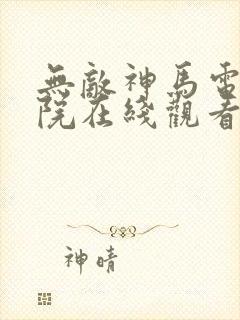 無敵神馬電
院在綫觀看
神晴